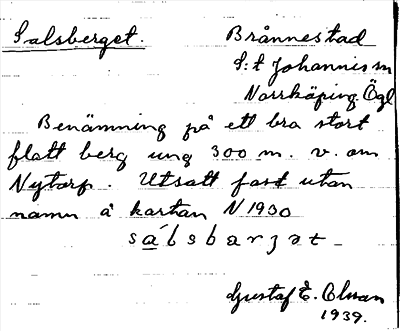 Salsberget.
Brånnestad
S:t Johannis sn
Norrköping Ögl
Benämning på ett bra stort
flatt berg ung 300 m. v. om
Nytorp. Utsatt fast utan
namn å kartan N 1930
Gustaf E. Olsson
1939.